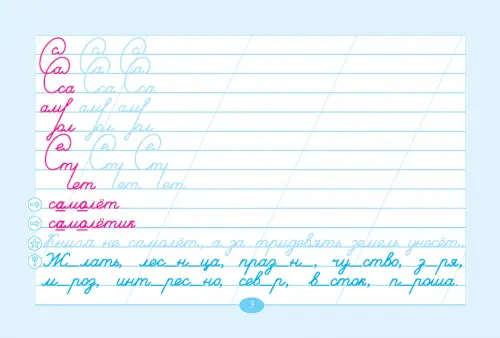 Са Са Са
Са Са Са
Сса Сса Сса
ам ам ам
мол мол мол
Се Се Се
Сту Сту Сту
лет лет лет
самолёт
самолётик
Книга не самолёт, а за тридевять земель унесёт.
Ж_лать, лес_н_ца, праз_н_, чу_ство, з_ря,
м_роз, инт_рес_но, сев_р, в_сток, п_роша.
3